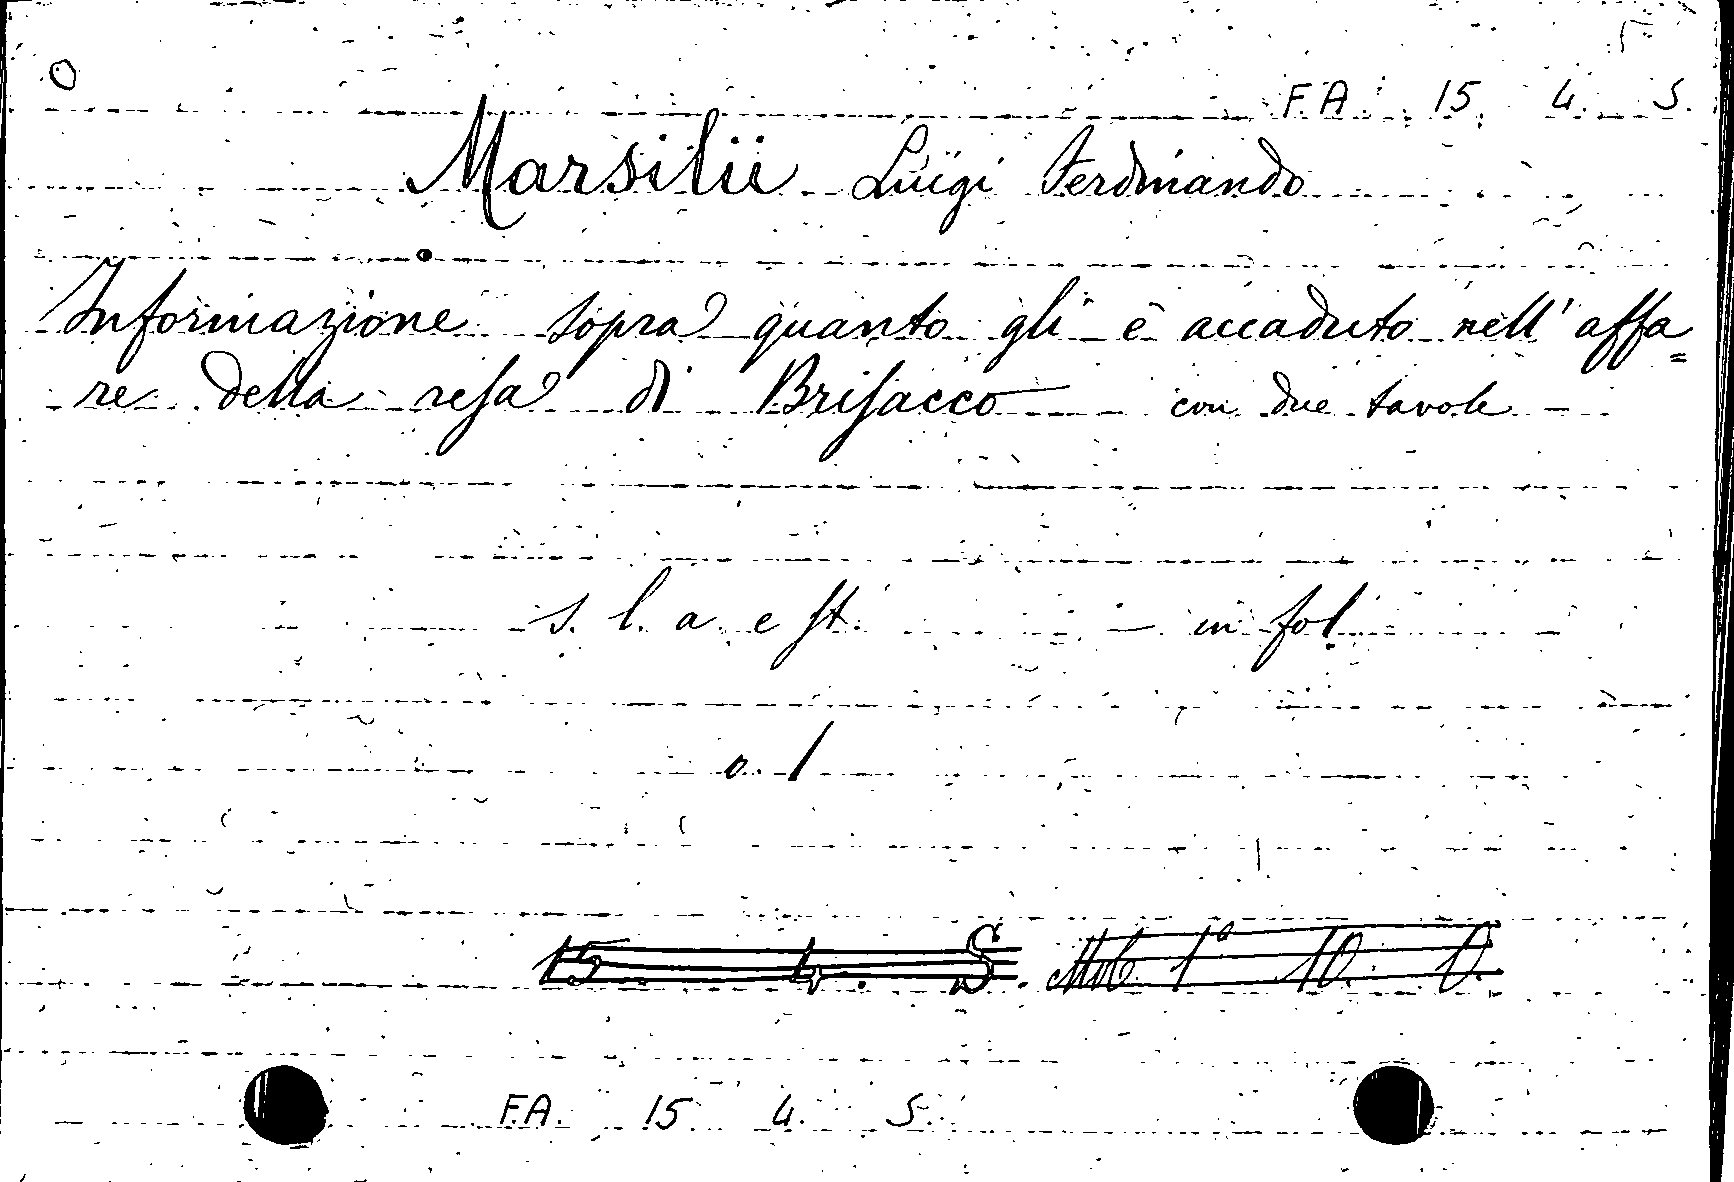 F.A. 15. 4. S.
Marsilii Luigi Ferdinando
Informazione sopra quanto gli è accaduto nell' affa=
re della resa di Brisacco con due tavole
s. l. a. e st. — in fol
o. 1
15. 4. S. Mob. 1º 10. O.
F.A. 15. 4. S.